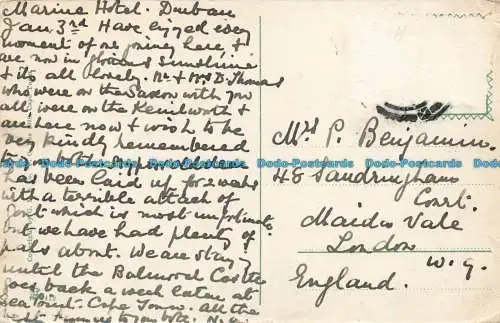 Marine Hotel. Durban
Jan 3rd Have enjoyed every
moment of our journey here &
are now in glorious sunshine
& its all lovely. Mr & Mrs D. Thomas
who were on the Saxon with you
all were on the Kenilworth &
are here now & wish to be
very kindly remembered
to you both.
has been laid up for 2 weeks
with a terrible attack of
Gout which is most unfortunate
but we have had plenty of
pals about. We are staying
until the Balmoral Castle
goes back a week later at
Sea Point. Cape Town. All the
best from us to you both.
Mrs P. Benjamin.
48 Sandringham
Court.
Maida Vale
London
W. 9.
England.
Dodo-Postcards Dodo-Postcards Dodo-Postcards Dodo-Postcards